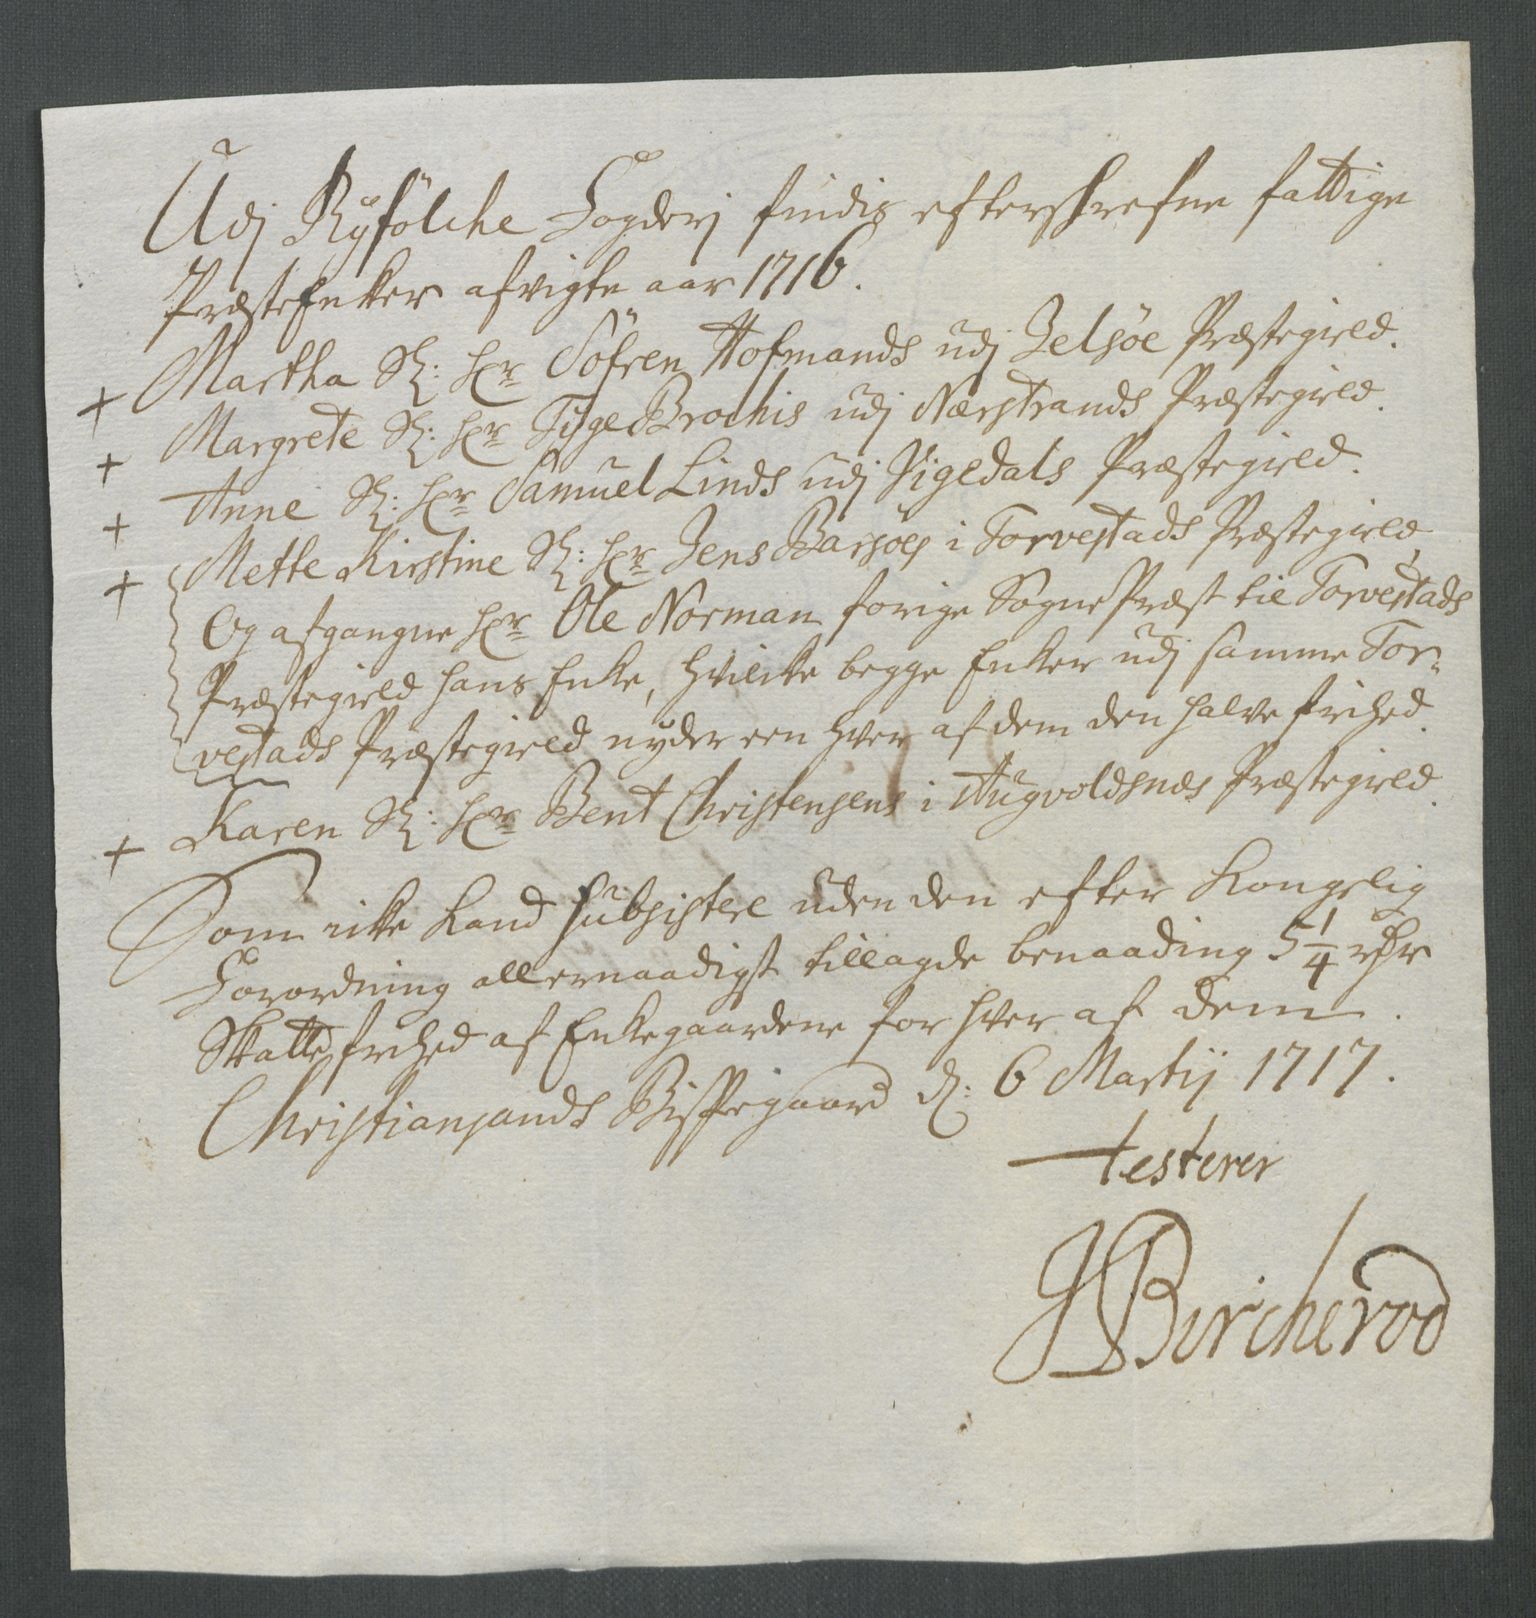 Udj Ryfölche Fogderj findis efterskrefne fattige
Præste Enker afvigte aar 1716.
+ Martha Sl: Hr Söfren Hofmands udj Jelsöe Præstegield.
+ Margrete Sl: Hr Tyge Brochis udj Nærstrands Præstegield.
+ Anne Sl: Hr Samuel Linds udj Vigedals Præstegield.
+ Mette Kirstine Sl: Hr Jens Barsöes i Torvestads Præstegield
Og afgangne Hr Ole Norman forige Sogne Præst til Torvestads
Præstegield hans Enke, hvilcke begge Enker udj samme Tor-
vestads Præstegield nyder een hver af dem den halve frihed.
+ Karen Sl: Hr Bent Christensens i Augvoldsnæs Præstegield.
Som icke kand subsistere uden den efter Kongelig
Forordning allernaadigst tillagde benaading 5 1/4 rdr
Skatte frihed af Enkegaardene for hver af dem.
Christiansands Bispegaard d: 6 Martij 1717.
testerer
JBircherod